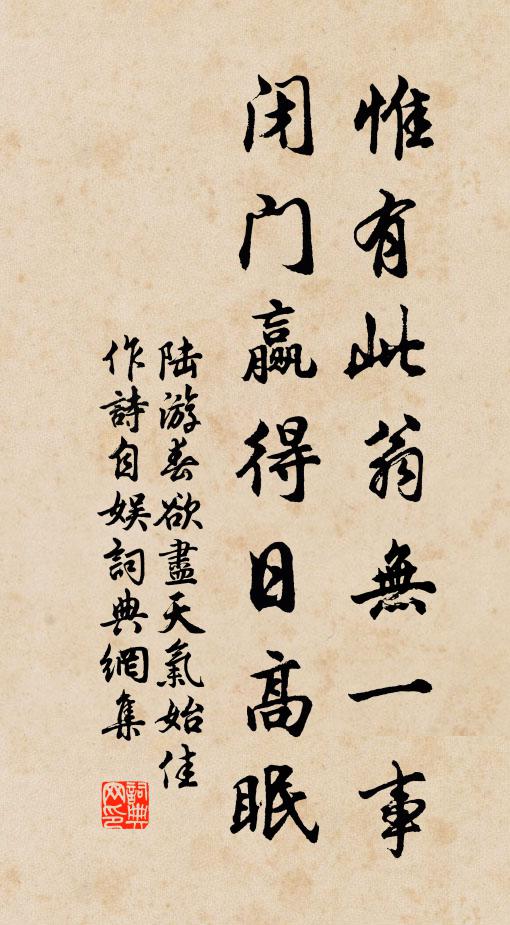 惟有此翁無一事
闭门赢得日高眠
陆游春欲盡天氣始佳
作詩自娱詞典網集
詞典网印